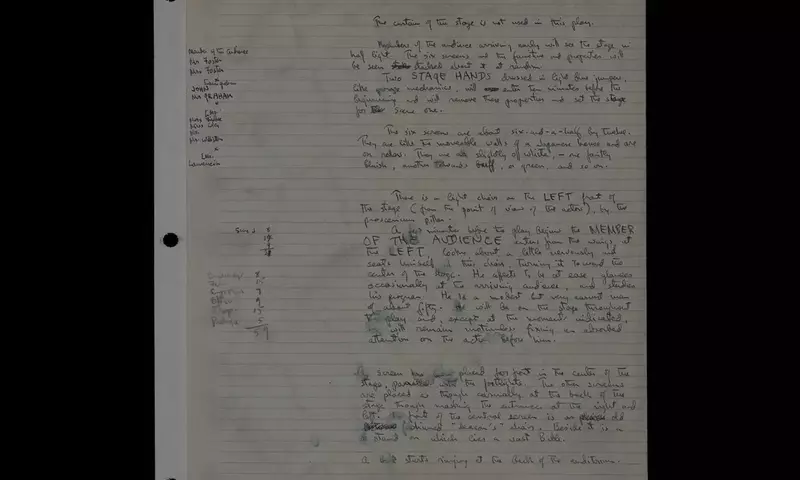 The curtain of the stage is not used in this play.
Members of the audience arriving early will see the stage in
half light. The six screens and the furniture and properties will
be seen stacked about it at random.
Two STAGE HANDS dressed in light blue jumpers,
like garage mechanics, will enter ten minutes before the
beginning and will remove these properties and set the stage
for scene one.
The six screens are about six-and-a-half by twelve.
They are like the moveable walls of a Japanese house and are
on rollers. They are all slightly off white, - one faintly
bluish, another towards buff, or green, and so on.
There is a light chair on the LEFT front of
the stage (from the point of view of the actor), by the
proscenium pillar.
A few minutes before the play begins the MEMBER
OF THE AUDIENCE enters from the wings, at
the LEFT looks about a little nervously and
seats himself in this chair, turning it toward the
center of the stage. He affects to be at ease, glances
occasionally at the arriving audience, and studies
his program. He is a modest but very earnest man
of about fifty. He will be on the stage throughout
the play and, except at the moment indicated,
will remain motionless fixing an absorbed
attention on the action before him.
A screen has been placed far front in the center of the
stage, parallel with the footlights. The other screens
are placed as though casually at the back of the
stage though masking the entrances at the right and
left. In front of the central screen is an old
"deacon's" chair. Beside it is a
stand on which lies a vast Bible.
A bell starts ringing at the back of the auditorium.
Member of the Audience
Mr Foster
Mrs Foster
JOHN
Mr GRAHAM